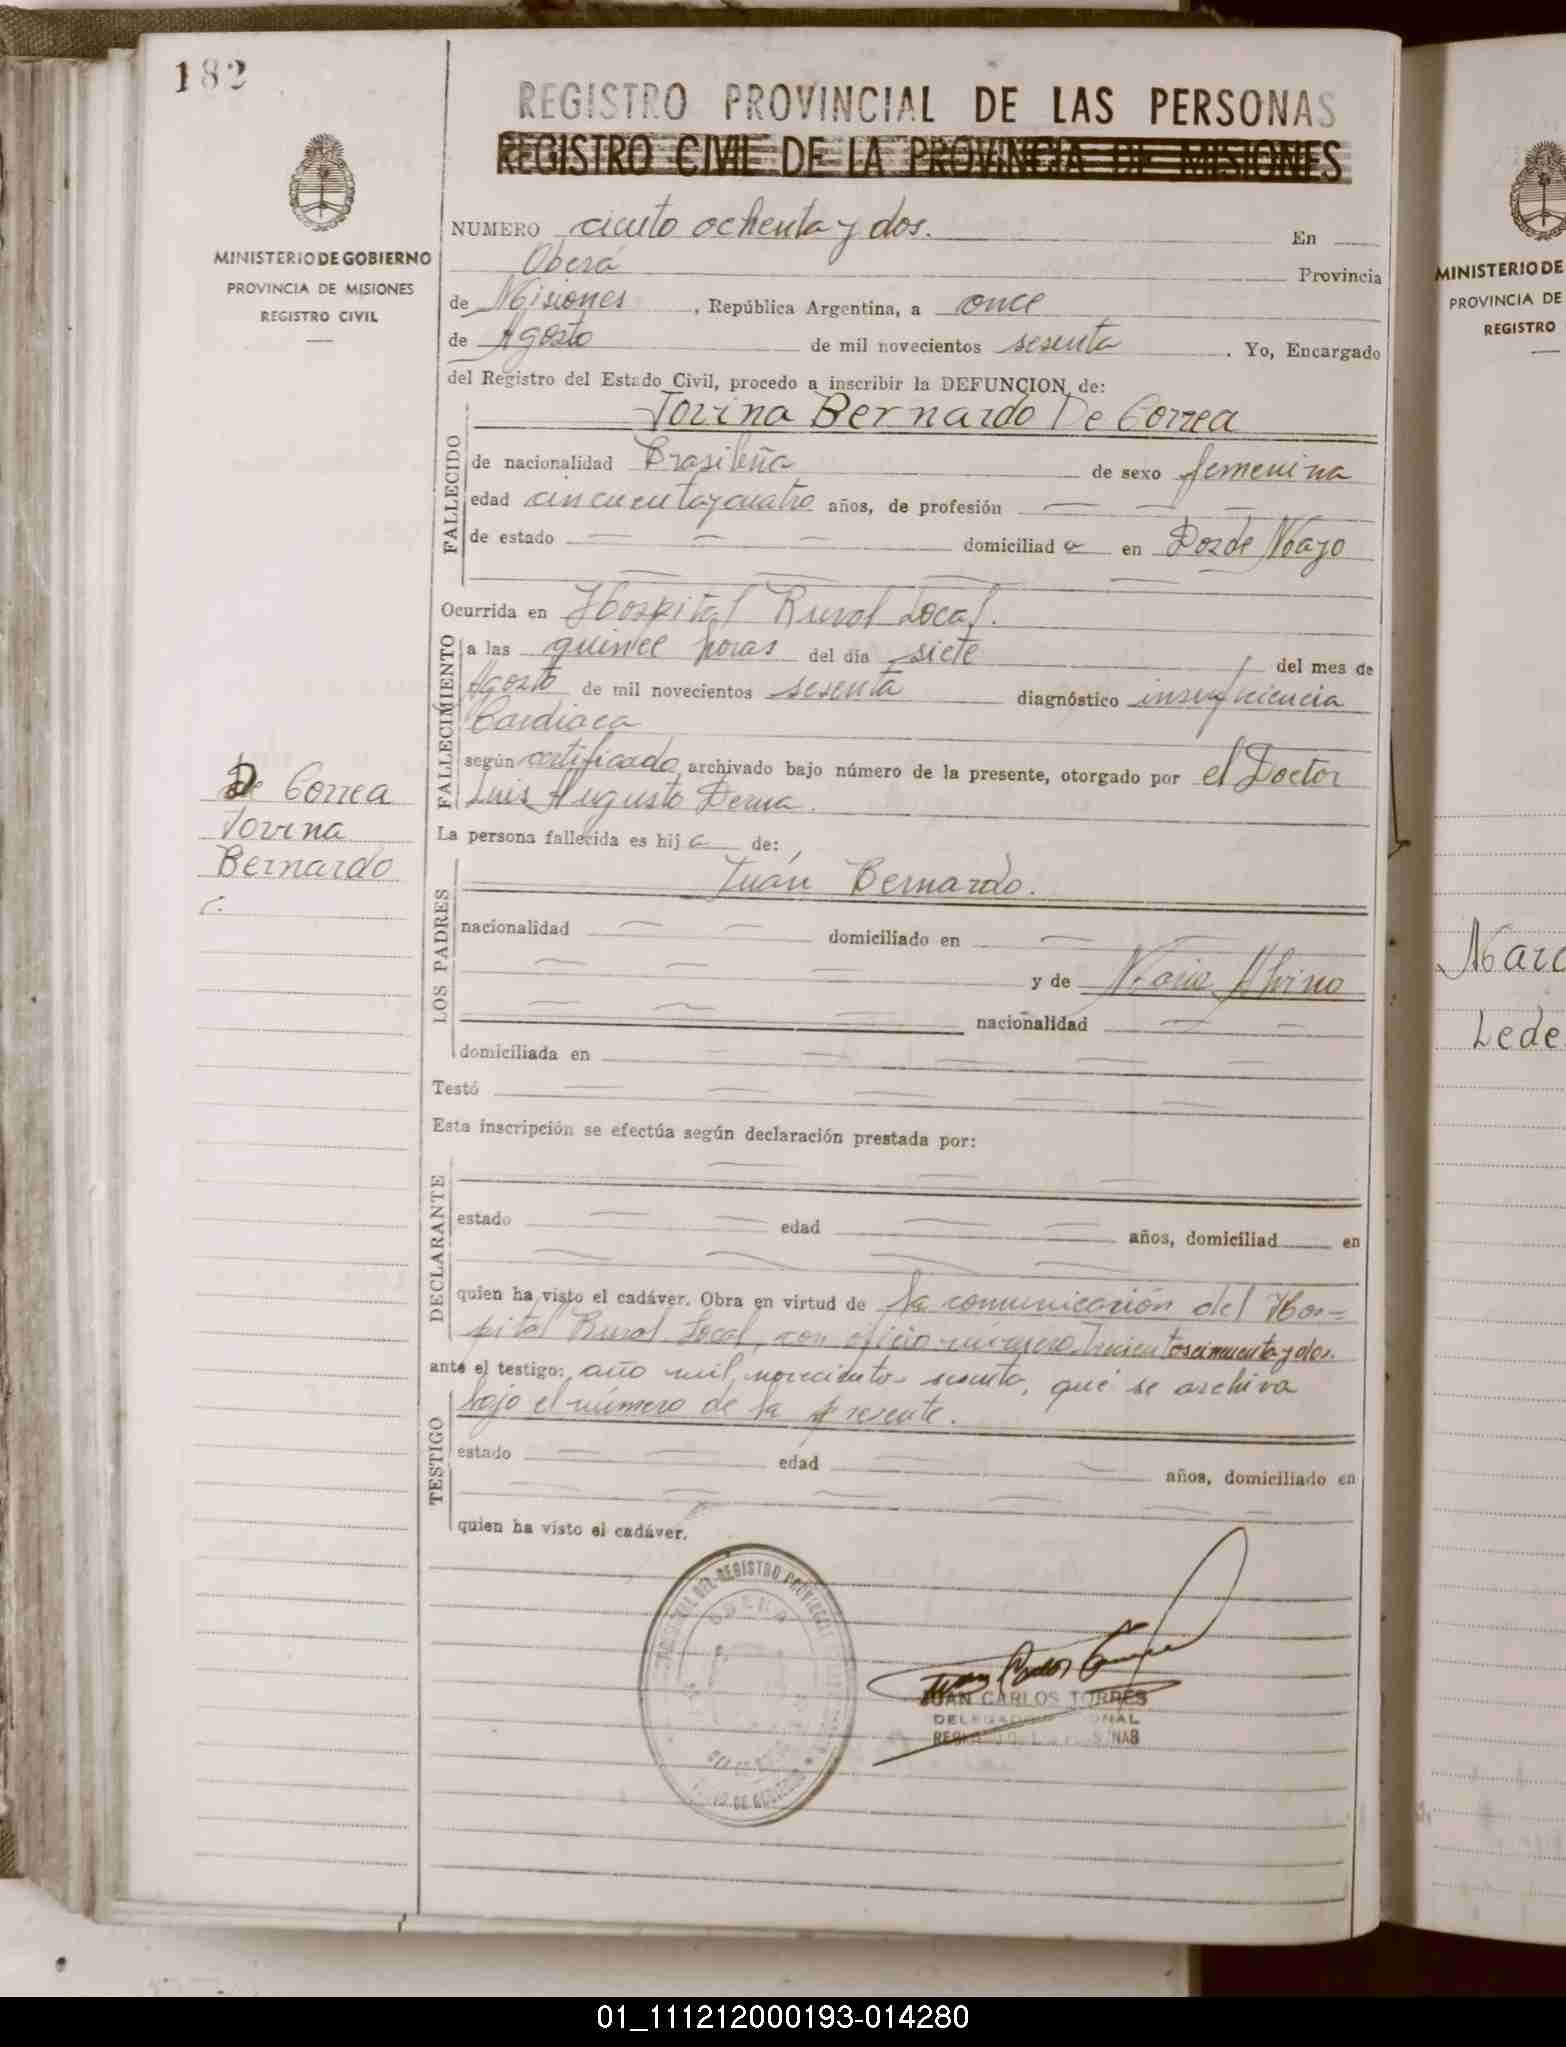 182
REGISTRO PROVINCIAL DE LAS PERSONAS
REGISTRO CIVIL DE LA PROVINCIA DE MISIONES
MINISTERIO DE GOBIERNO
PROVINCIA DE MISIONES
REGISTRO CIVIL
NUMERO ciento ochenta y dos. En
Oberá Provincia
de Misiones, República Argentina, a once
de Agosto de mil novecientos sesenta. Yo, Encargado
del Registro del Estado Civil, procedo a inscribir la DEFUNCION de:
Jovina Bernardo De Correa
FALLECIDO
de nacionalidad Brasileña de sexo femenina
edad cincuenta y cuatro años, de profesión — — —
de estado — — — domiciliad a en Dos de Mayo
Ocurrida en Hospital Rural Local.
FALLECIMIENTO
a las quince horas del día siete del mes de
Agosto de mil novecientos sesenta diagnóstico insuficiencia
Cardiaca
según certificado, archivado bajo número de la presente, otorgado por el Doctor
Luis Augusto Derna.
De Correa
Jovina
Bernardo
La persona fallecida es hij a de:
Juán Bernardo.
LOS PADRES
nacionalidad — — domiciliado en — —
— — — y de María
— — — nacionalidad — —
domiciliada en — — — —
Testó — — — — —
Esta inscripción se efectúa según declaración prestada por:
DECLARANTE
estado — — edad — — años, domiciliad en
quien ha visto el cadáver. Obra en virtud de la comunicación del Hos=
pital Rural Local, con oficio número Trescientos cincuenta y dos.
ante el testigo: año mil novecientos sesenta, que se archiva
bajo el número de la presente.
TESTIGO
estado — — edad — — años, domiciliado en
quien ha visto el cadáver.
DEL REGISTRO PROVINCIAL
JUAN CARLOS TORRES
MINISTERIO DE
PROVINCIA DE
REGISTRO
Marc
Lede
01_111212000193-014280